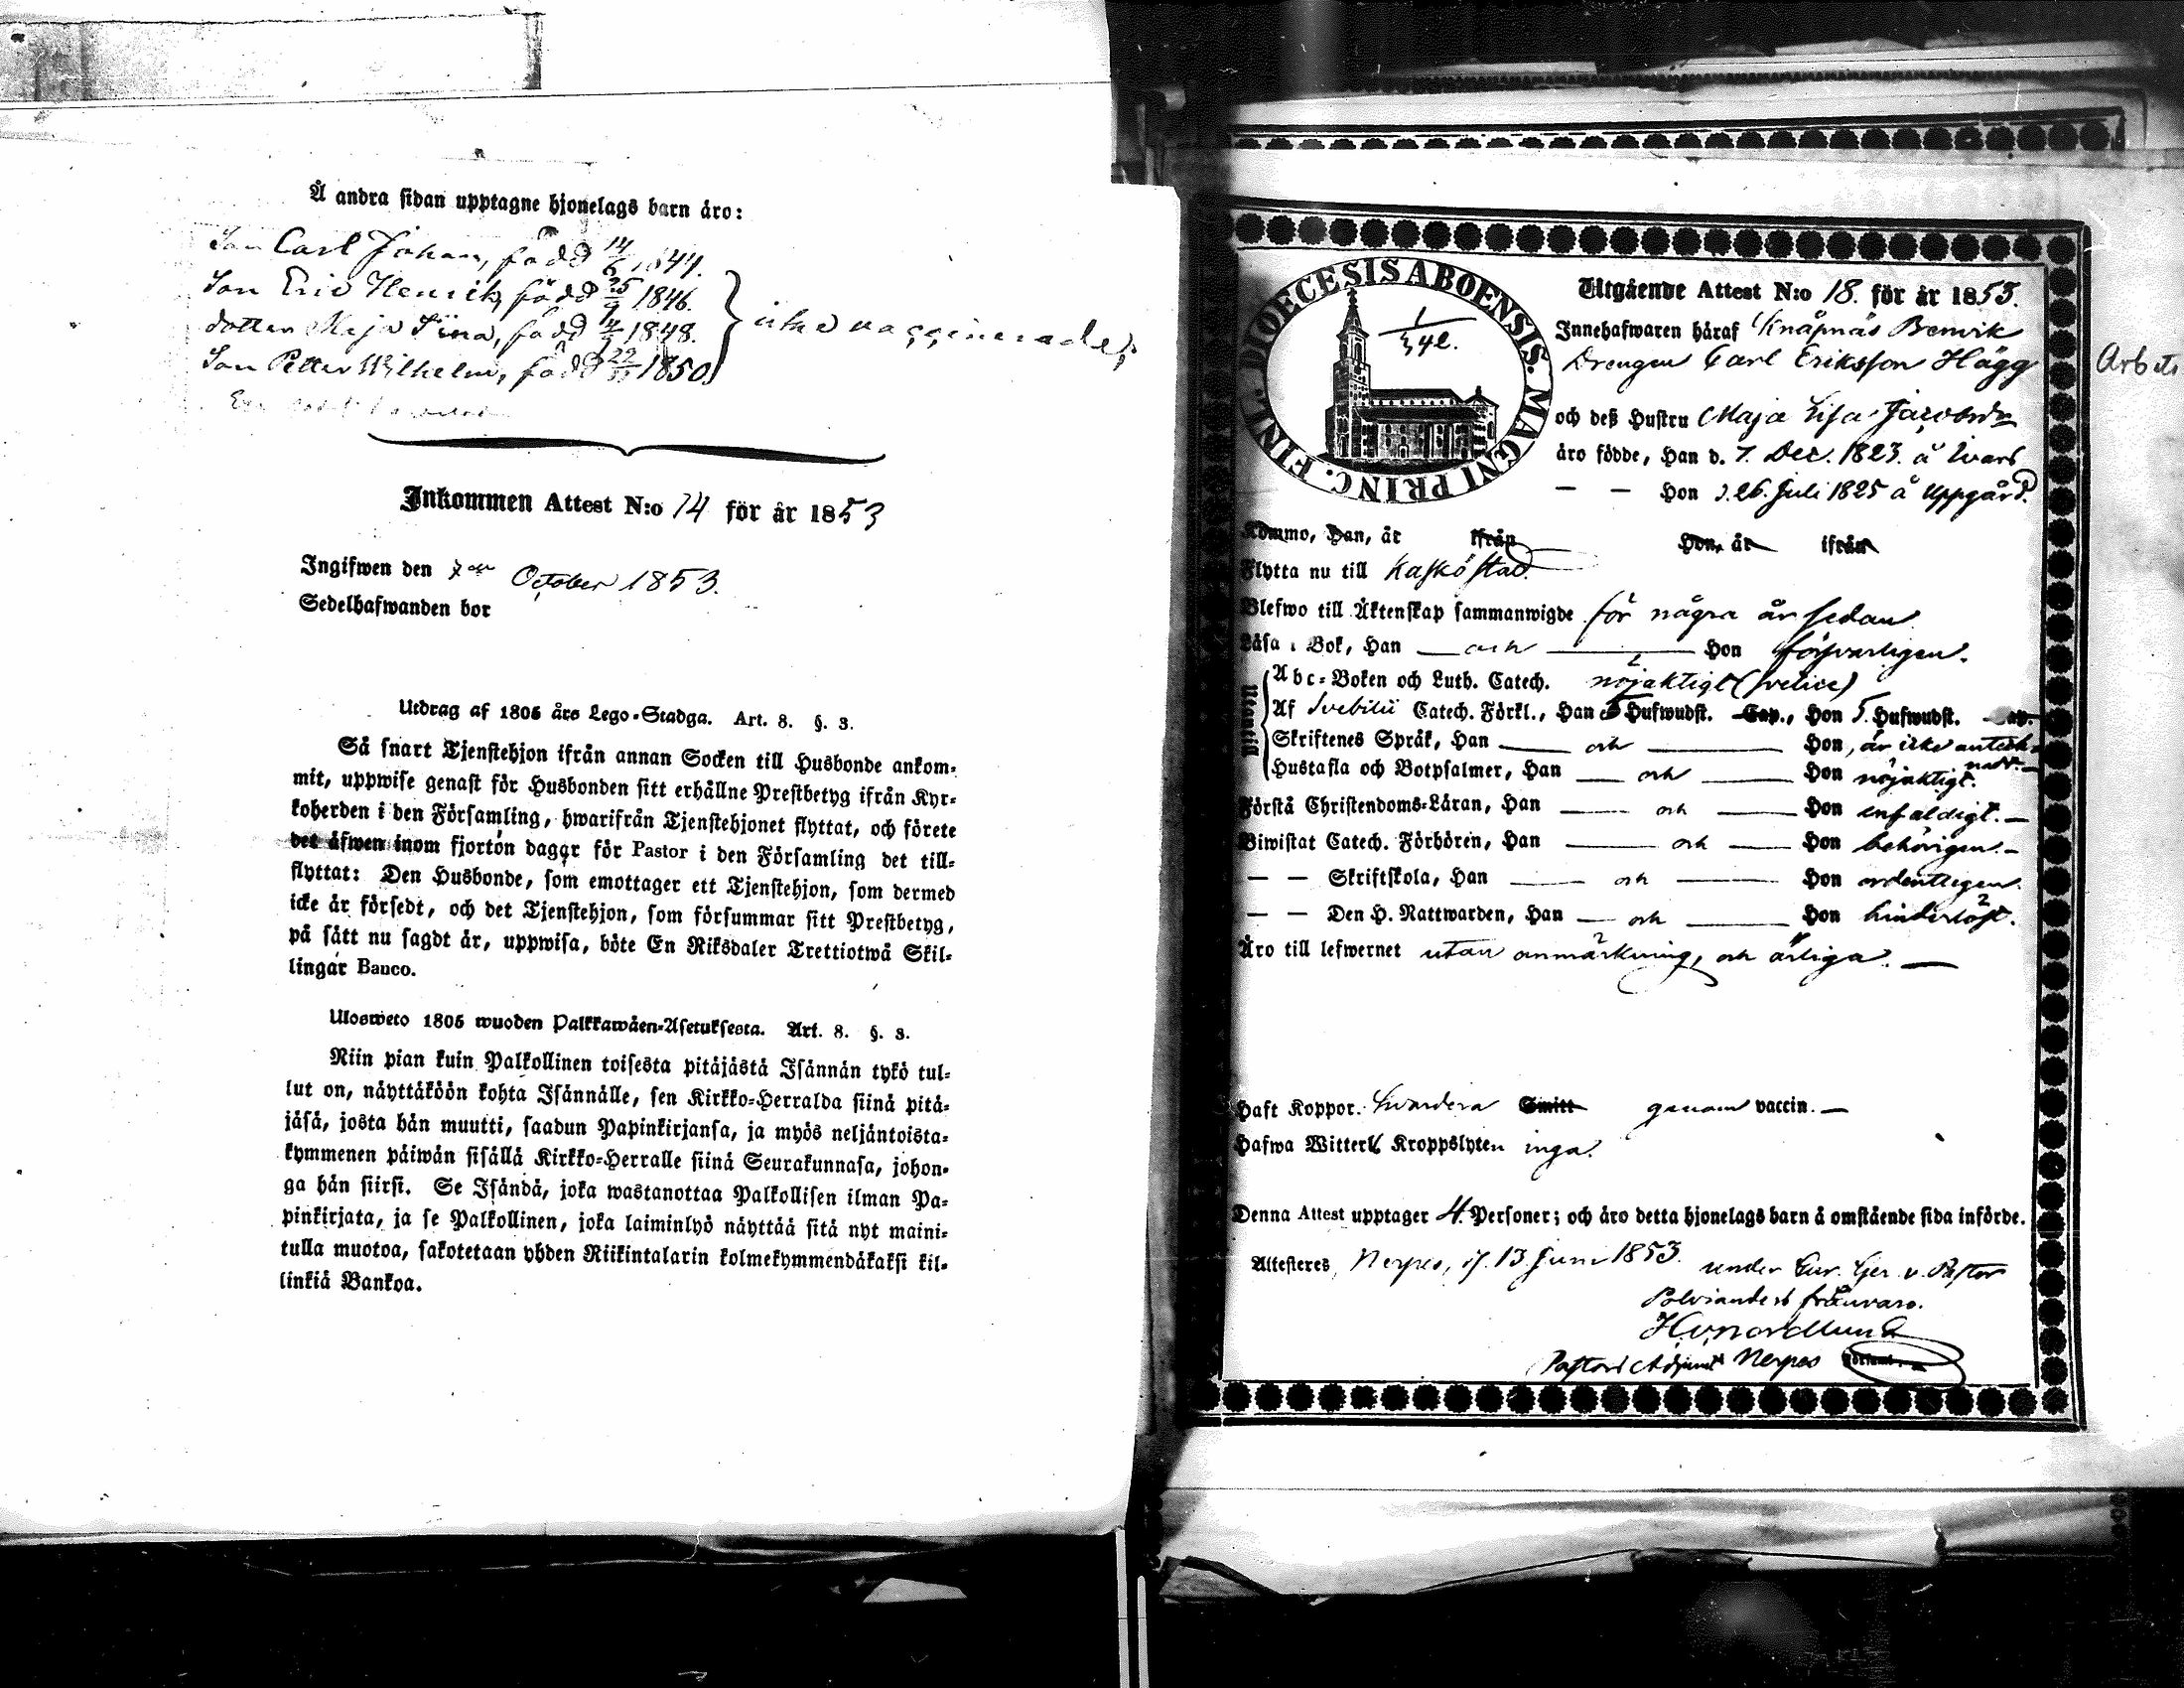 Å andra sidan upptagne hjonelags barn äro:
Son Carl Johan, född 14/6 1844.
Son Eric Henrik, född 25/9 1846.
dotter Maja Stina, född 1848.
Son Petter Wilhelm, född 22/11 1850
icke vaccinerade
Inkommen Attest N:o 14 för år 1853
Ingifwen den 7de October 1853.
Sedelhafwanden bor
Utdrag af 1805 års Lego-Stadga. Art. 8. §. 3.
Så snart Tjenstehjon ifrån annan Socken till Husbonde ankom-
mit, uppwise genast för Husbonden sitt erhållne Prestbetyg ifrån Kyr-
koherden i den Församling, hwarifrån Tjenstehjonet flyttat, och förete
det äfwen inom fjorton dagar för Pastor i den Församling det till-
flyttat: Den Husbonde, som emottager ett Tjenstehjon, som dermed
icke är försedt, och det Tjenstehjon, som försummar sitt Prestbetyg,
på sätt nu sagdt är, uppwisa, böte En Riksdaler Trettiotwå Skil-
lingar Banco.
Ulosweto 1805 wuoden Palkkawäen-Asetuksesta. Art. 8. §. 3.
Niin pian kuin Palkollinen toisesta pitäjästä Isännän tykö tul-
lut on, näyttäköön kohta Isännälle, sen Kirkko-Herralda siinä pitä-
jäsä, josta hän muutti, saadun Papinkirjansa, ja myös neljäntoista-
kymmenen päiwän sisällä Kirkko-Herralle siinä Seurakunnasa, johon-
ga hän siirsi. Se Isändä, joka wastanottaa Palkollisen ilman Pa-
pinkirjata, ja se Palkollinen, joka laiminlyö näyttää sitä nyt maini-
tulla muotoa, sakotetaan yhden Riikintalarin kolmekymmendäkaksi kil-
linkiä Bankoa.
FINL. DIOECESIS ABOENSIS. MAGNI PRINC.
Utgående Attest N:o 18. för år 1853.
Innehafwaren häraf Knåpnäs Benvik
Drengen Carl Eriksson Hägg
Arbets
och deß Hustru Maja Lisa Jacobsdr
äro födde, Han d. 7. Dec. 1823. å Ivars
— — Hon d. 26. Juli 1825 å Uppgård.
Kommo, Han, år ifrån Hon, år ifrån
Flytta nu till Kaskö stad.
Blefwo till Äktenskap sammanwigde för några år sedan
Läsa i Bok, Han — och — Hon försvarligen.
Utantill
Abc-Boken och Luth. Catech. nöjaktigt
Af Svebilii Catech. Förkl., Han 5 Hufwudst. Cap., Hon 5. Hufwudst. Cap.
Skriftenes Språk, Han — och — Hon, är icke anteck-
nadt.
Hustafla och Botpsalmer, Han — och — Hon nöjaktigt.
Förstå Christendoms-Läran, Han — och — Hon enfaldigt. —
Biwistat Catech. Förhören, Han — och — Hon behörigen. —
— — Skriftskola, Han — och — Hon ordentligen.
— — Den H. Nattwarden, Han — och — Hon hinderlöst.
Äro till lefwernet utan anmärkning, och ärliga. —
Haft Koppor. Hvardera Smitt genom vaccin. —
Hafwa Witterl. Kroppslyten inga.
Denna Attest upptager 4. Personer; och äro detta hjonelags barn å omstående sida införde.
Attesteres, Nerpes, d. 13. Juni 1853. under v. Pastor
Polvianders frånvaro.
Nordlund
Pastors Adjunct Nerpes